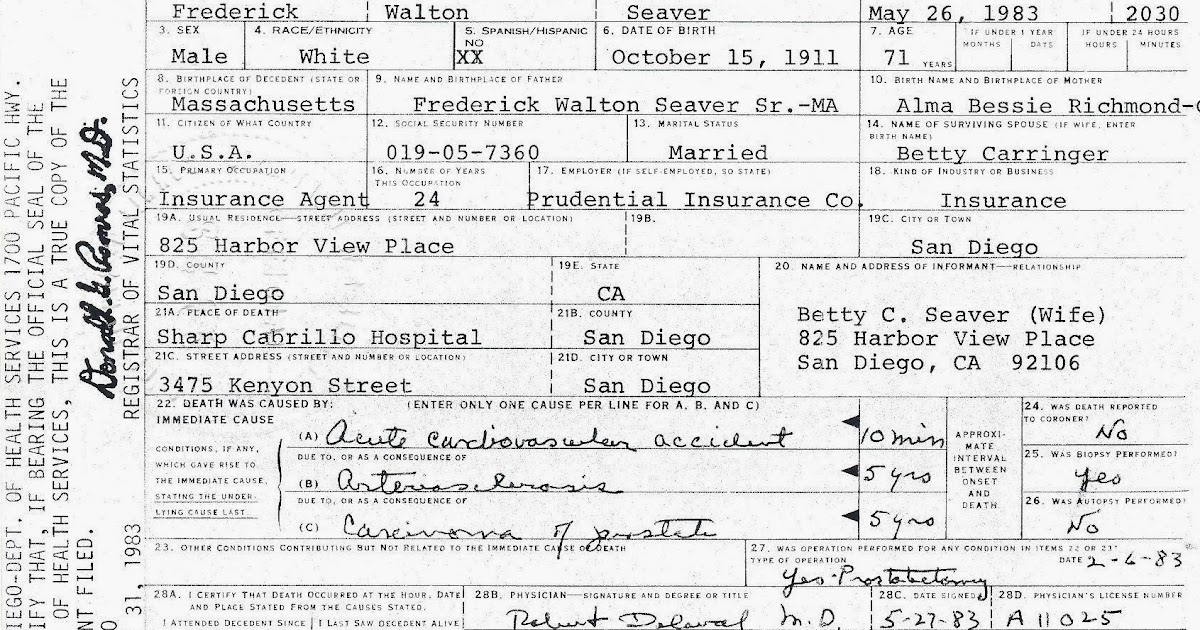 Frederick Walton Seaver May 26, 1983 2030
3. SEX 4. RACE/ETHNICITY 5. SPANISH/HISPANIC 6. DATE OF BIRTH 7. AGE IF UNDER 1 YEAR IF UNDER 24 HOURS
NO MONTHS DAYS HOURS MINUTES
Male White XX October 15, 1911 71 YEARS
8. BIRTHPLACE OF DECEDENT (STATE OR 9. NAME AND BIRTHPLACE OF FATHER 10. BIRTH NAME AND BIRTHPLACE OF MOTHER
FOREIGN COUNTRY)
Massachusetts Frederick Walton Seaver Sr.-MA Alma Bessie Richmond-
11. CITIZEN OF WHAT COUNTRY 12. SOCIAL SECURITY NUMBER 13. MARITAL STATUS 14. NAME OF SURVIVING SPOUSE (IF WIFE, ENTER
BIRTH NAME)
U.S.A. 019-05-7360 Married Betty Carringer
15. PRIMARY OCCUPATION 16. NUMBER OF YEARS 17. EMPLOYER (IF SELF-EMPLOYED, SO STATE) 18. KIND OF INDUSTRY OR BUSINESS
THIS OCCUPATION
Insurance Agent 24 Prudential Insurance Co. Insurance
19A. USUAL RESIDENCE—STREET ADDRESS (STREET AND NUMBER OR LOCATION) 19B. 19C. CITY OR TOWN
825 Harbor View Place San Diego
19D. COUNTY 19E. STATE 20. NAME AND ADDRESS OF INFORMANT—RELATIONSHIP
San Diego CA
Betty C. Seaver (Wife)
825 Harbor View Place
San Diego, CA 92106
21A. PLACE OF DEATH 21B. COUNTY
Sharp Cabrillo Hospital San Diego
21C. STREET ADDRESS (STREET AND NUMBER OR LOCATION) 21D. CITY OR TOWN
3475 Kenyon Street San Diego
22. DEATH WAS CAUSED BY: (ENTER ONLY ONE CAUSE PER LINE FOR A, B, AND C)
IMMEDIATE CAUSE
(A) Acute cardiovascular accident 10 min
CONDITIONS, IF ANY,
WHICH GAVE RISE TO
THE IMMEDIATE CAUSE,
STATING THE UNDER-
LYING CAUSE LAST
DUE TO, OR AS A CONSEQUENCE OF
(B) Arteriosclerosis 5 yrs
DUE TO, OR AS A CONSEQUENCE OF
(C) Carcinoma of prostate 5 yrs
APPROXI-
MATE
INTERVAL
BETWEEN
ONSET
AND
DEATH
24. WAS DEATH REPORTED
TO CORONER?
No
25. WAS BIOPSY PERFORMED?
yes
26. WAS AUTOPSY PERFORMED?
No
23. OTHER CONDITIONS CONTRIBUTING BUT NOT RELATED TO THE IMMEDIATE CAUSE OF DEATH
27. WAS OPERATION PERFORMED FOR ANY CONDITION IN ITEMS 22 OR 23?
TYPE OF OPERATION DATE 2-6-83
yes-Prostatectomy
28A. I CERTIFY THAT DEATH OCCURRED AT THE HOUR, DATE 28B. PHYSICIAN—SIGNATURE AND DEGREE OR TITLE 28C. DATE SIGNED 28D. PHYSICIAN'S LICENSE NUMBER
AND PLACE STATED FROM THE CAUSES STATED.
I ATTENDED DECEDENT SINCE I LAST SAW DECEDENT ALIVE Robert M.D. 5-27-83 A11025
IEGO-DEPT. OF HEALTH SERVICES 1700 PACIFIC HWY.
IFY THAT, IF BEARING THE OFFICIAL SEAL OF THE
OF HEALTH SERVICES, THIS IS A TRUE COPY OF THE
NT FILED.
Donald G. M.D.
31, 1983 REGISTRAR OF VITAL STATISTICS